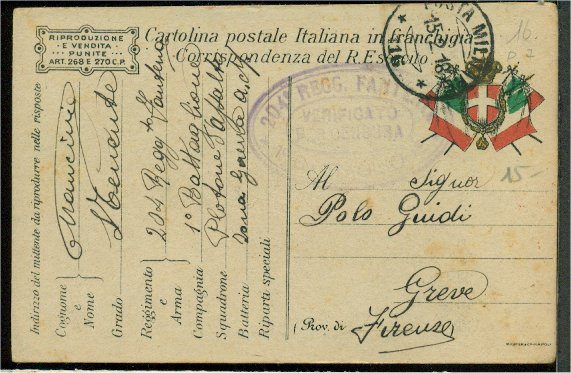 RIPRODUZIONE
E VENDITA
PUNITE
ART. 268 E 270 C.P.
Cartolina postale Italiana in franchigia
Corrispondenza del R. Esercito
POSTA MILIT
15
18
204 REGG. FANT
VERIFICATO
PER CENSURA
16
15-
Indirizzo del mittente da riprodurre nelle risposte
Cognome
e
Nome
Mancini
Grado
Tenente
Reggimento
e
Arma
204 Regg Fanteria
Compagnia
1° Battaglione
Squadrone
Plotone
Batteria
Zona Guerra
Riparti speciali
Al Signor
Polo Guidi
Greve
(Prov. di Firenze)